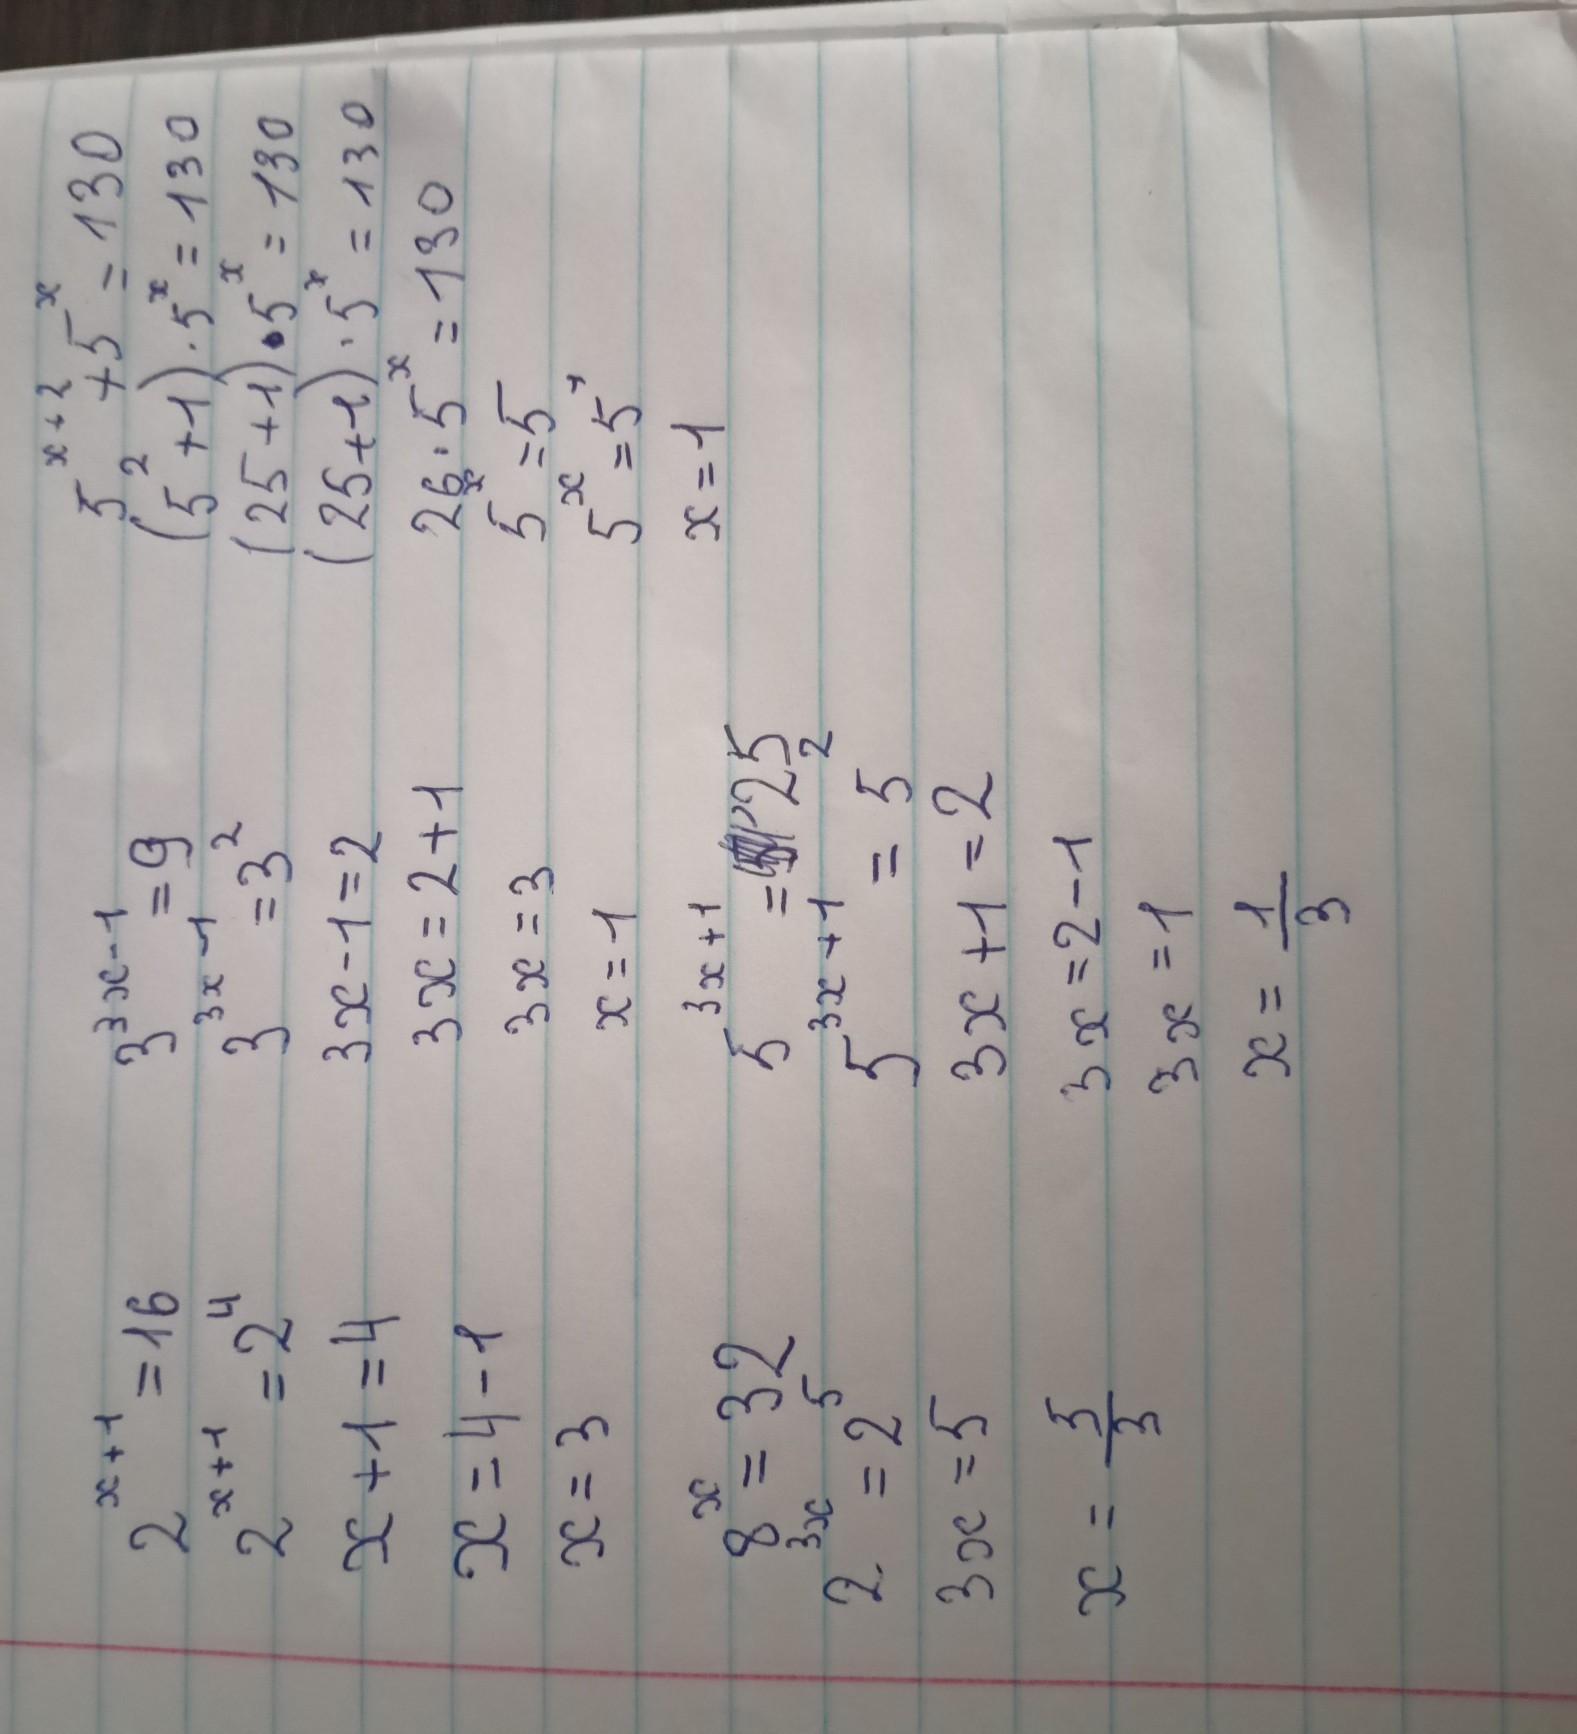 2^{x+1} = 16
2^{x+1} = 2^4
x+1=4
x=4-1
x=3
8^x = 32
2^{3x} = 2^5
3x=5
x = \frac{5}{3}
3^{3x-1} = 9
3^{3x-1} = 3^2
3x-1=2
3x=2+1
3x=3
x=1
5^{3x+1} = 25
5^{3x+1} = 5^2
3x+1=2
3x=2-1
3x=1
x = \frac{1}{3}
5^{x+2} + 5^x = 130
(5^2+1)·5^x = 130
(25+1)·5^x = 130
(25+1)·5^x = 130
26·5^x = 130
5^x = 5
5^x = 5^1
x=1